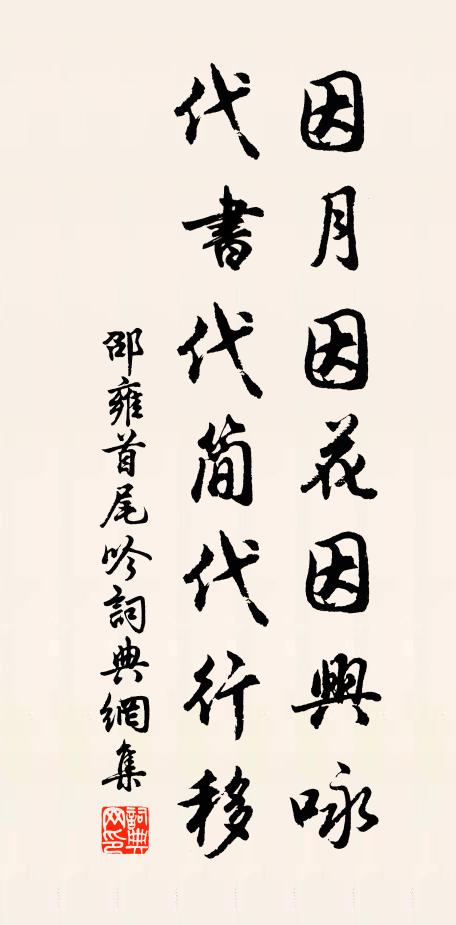 因月因花因興咏
代書代简代行移
邵雍首尾吟詞典網集
詞典
网印